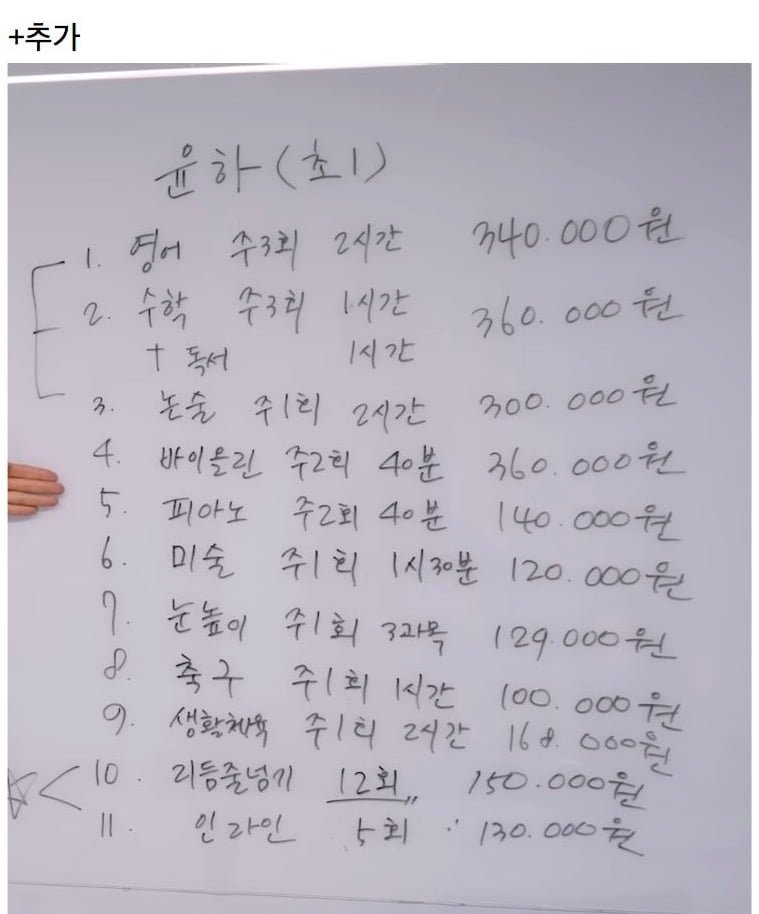 +추가
윤하(초1)
1. 영어 주3회 2시간 340.000원
2. 수학 주3회 1시간 360.000원
+ 독서 1시간
3. 논술 주1회 2시간 300.000원
4. 바이올린 주2회 40분 360.000원
5. 피아노 주2회 40분 140.000원
6. 미술 주1회 1시30분 120.000원
7. 눈높이 주1회 3과목 129.000원
8. 축구 주1회 1시간 100.000원
9. 생활체육 주1회 2시간 168.000원
10. 리듬줄넘기 12회 150.000원
11. 인라인 5회 130.000원